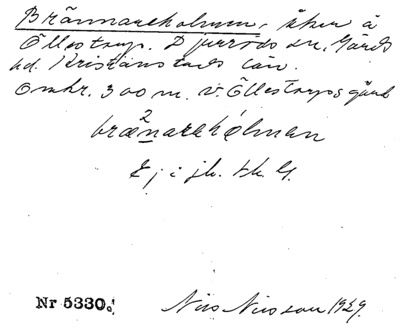 Brännareholmen, åker å
Öllestorp. Djurröds sn. Gärds
hd. Kristianstads län.
Omkr. 300 m. v. Öllestorps gård
brænarehólmen
Ej i jb. l. Gk.
Nr 5330.
Nils Nilsson 1929.